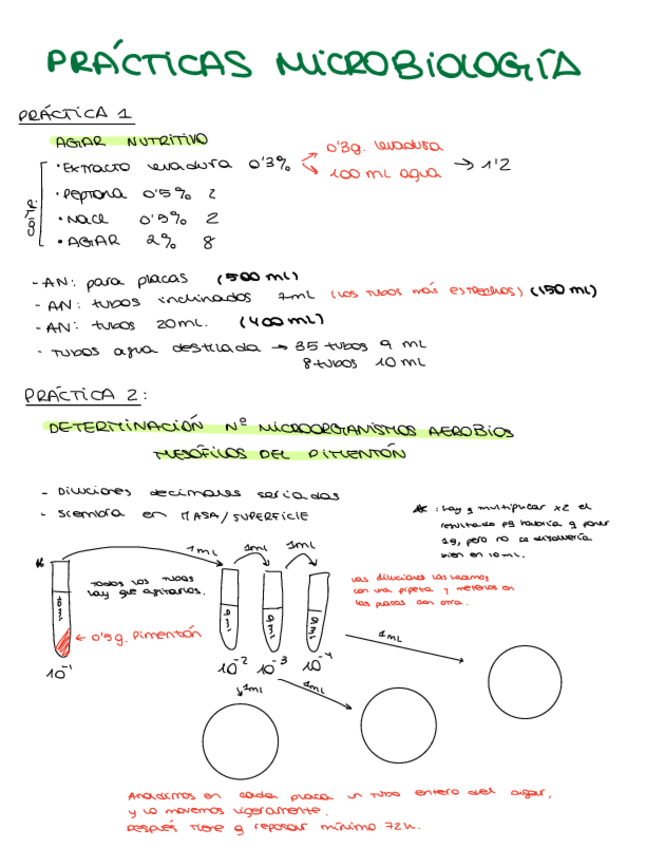 PRÁCTICAS MICROBIOLOGÍA
PRÁCTICA 1
AGAR NUTRITIVO
comp.
· EXTRACTO levadura 0'3%
0'3g. levadura
100 mL agua
→ 1'2
· Peptona 0'5% 2
· NaCl 0'5% 2
· AGAR 2% 8
- AN: para placas (500 mL)
- AN: tubos inclinados 7mL (los tubos más estrechos) (150 mL)
- AN: tubos 20mL. (400 mL)
· Tubos agua destilada → 35 tubos 9 mL
8 tubos 10 mL
PRÁCTICA 2:
DETERMINACIÓN Nº MICROORGANISMOS AEROBIOS
MESÓFILOS DEL PIMENTÓN
- Diluciones decimales seriadas
- Siembra en MASA/SUPERFICIE
* : hay q multiplicar x2 el
resultado pq habría q poner
1g, pero no se disolvería
bien en 10mL.
*
1mL 1mL 1mL
Todos los tubos
hay que agitarlos.
Las diluciones las hacemos
con una pipeta y meterlos en
las placas con otra.
10mL
9mL
9mL
9mL
← 0'5g. Pimentón
10⁻¹ 10⁻² 10⁻³ 10⁻⁴
1mL
1mL
1mL
Añadimos en cada placa un tubo entero del agar,
y lo movemos ligeramente.
Después tiene q reposar mínimo 72h.